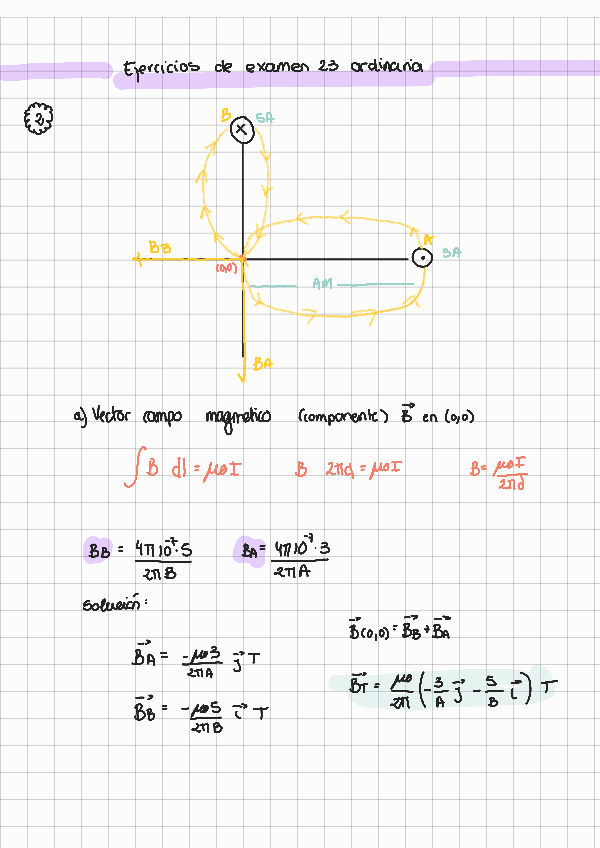 Ejercicios de examen 23 ordinaria
2)
B 5A
A
3A
BB
(0,0)
AM
BA
a) Vector campo magnetico (componente) B⃗ en (0,0)
∫ B dl = μo I B 2πd = μo I B = μo I / 2πd
BB = 4π10⁻⁷·5 / 2πB BA = 4π10⁻⁷·3 / 2πA
Solución:
B⃗(0,0) = B⃗B + B⃗A
B⃗A = -μo3 / 2πA j⃗ T
B⃗T = μo / 2π (-3/A j⃗ - 5/B i⃗) T
B⃗B = -μo5 / 2πB i⃗ T